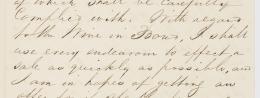 of which shall be carefully
Complied with. With regard
to the Wine in Bond, I shall
use every endeavour to effect a
sale as quickly as possible, and
I am in hopes of getting an